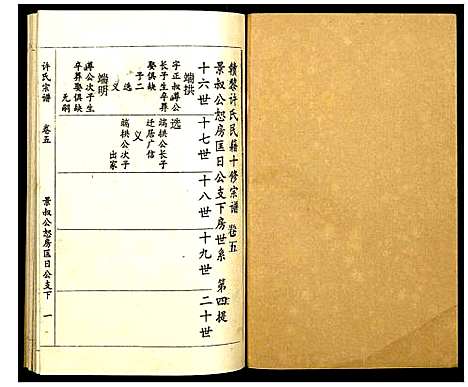 赣黎许氏民籍十修宗谱 卷五
景叔公恕房匡日公支下房世系 第四提
十六世 十七世 十八世 十九世 二十世
端拱
字正叔蹲公
长子生卒葬
娶俱缺
子二
选
义
端明
蹲公次子生
卒葬娶俱缺
无嗣
选
端拱公长子
迁居广信
义
端拱公次子
出家
许氏宗谱 卷五 景叔公恕房匡日公支下 一